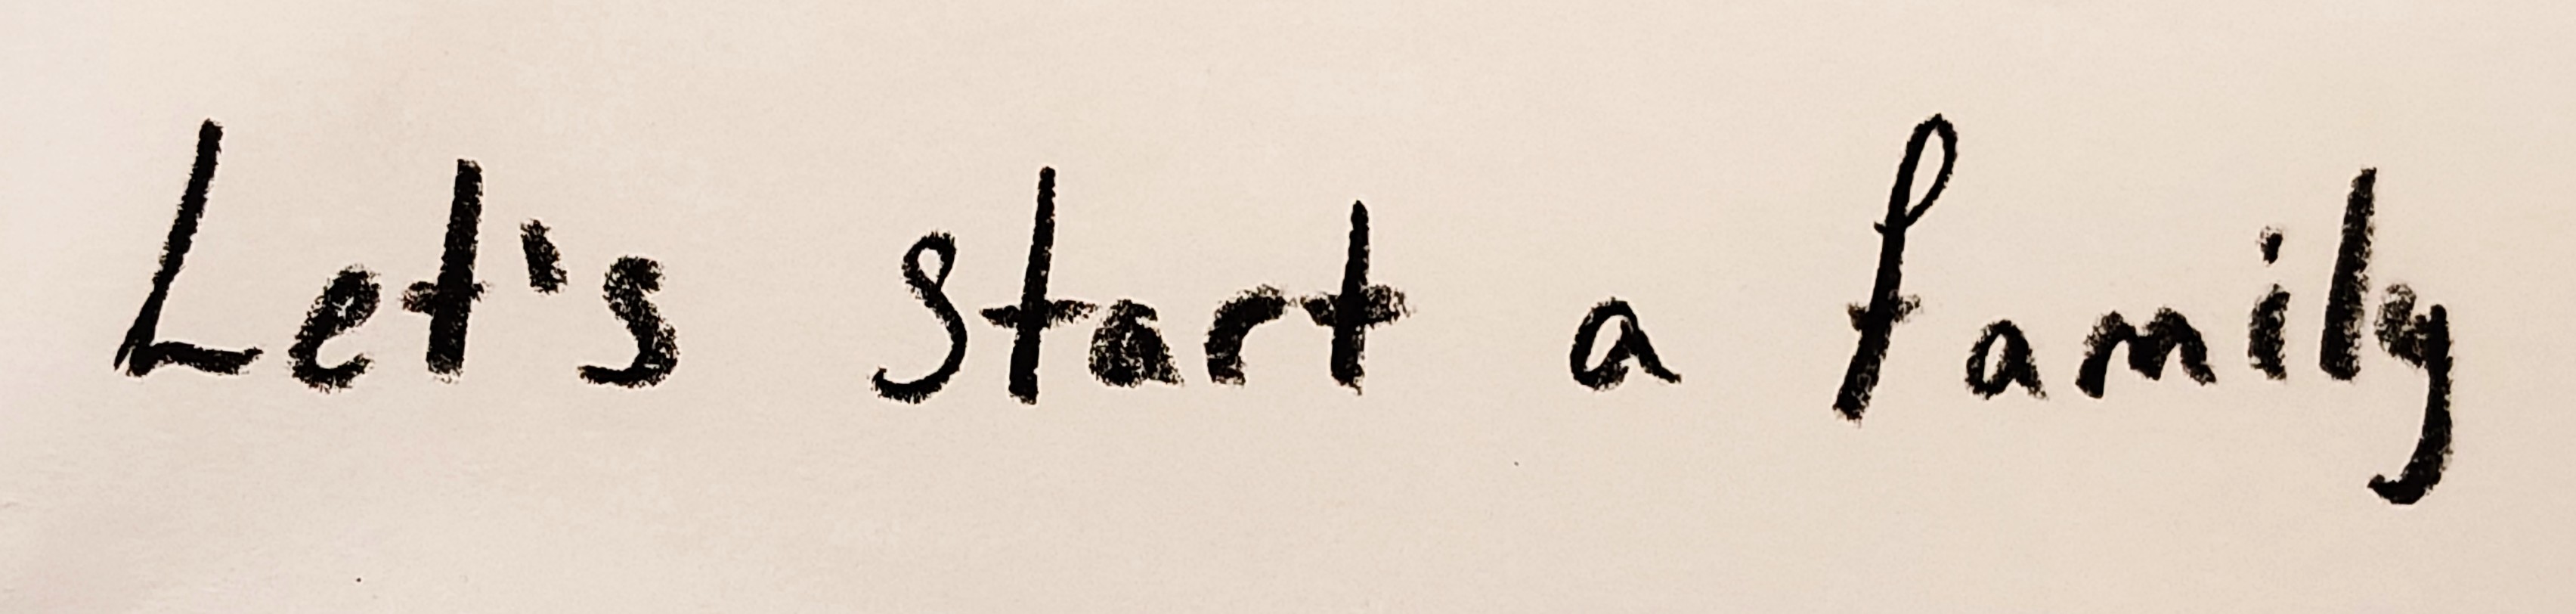 Let's start a family